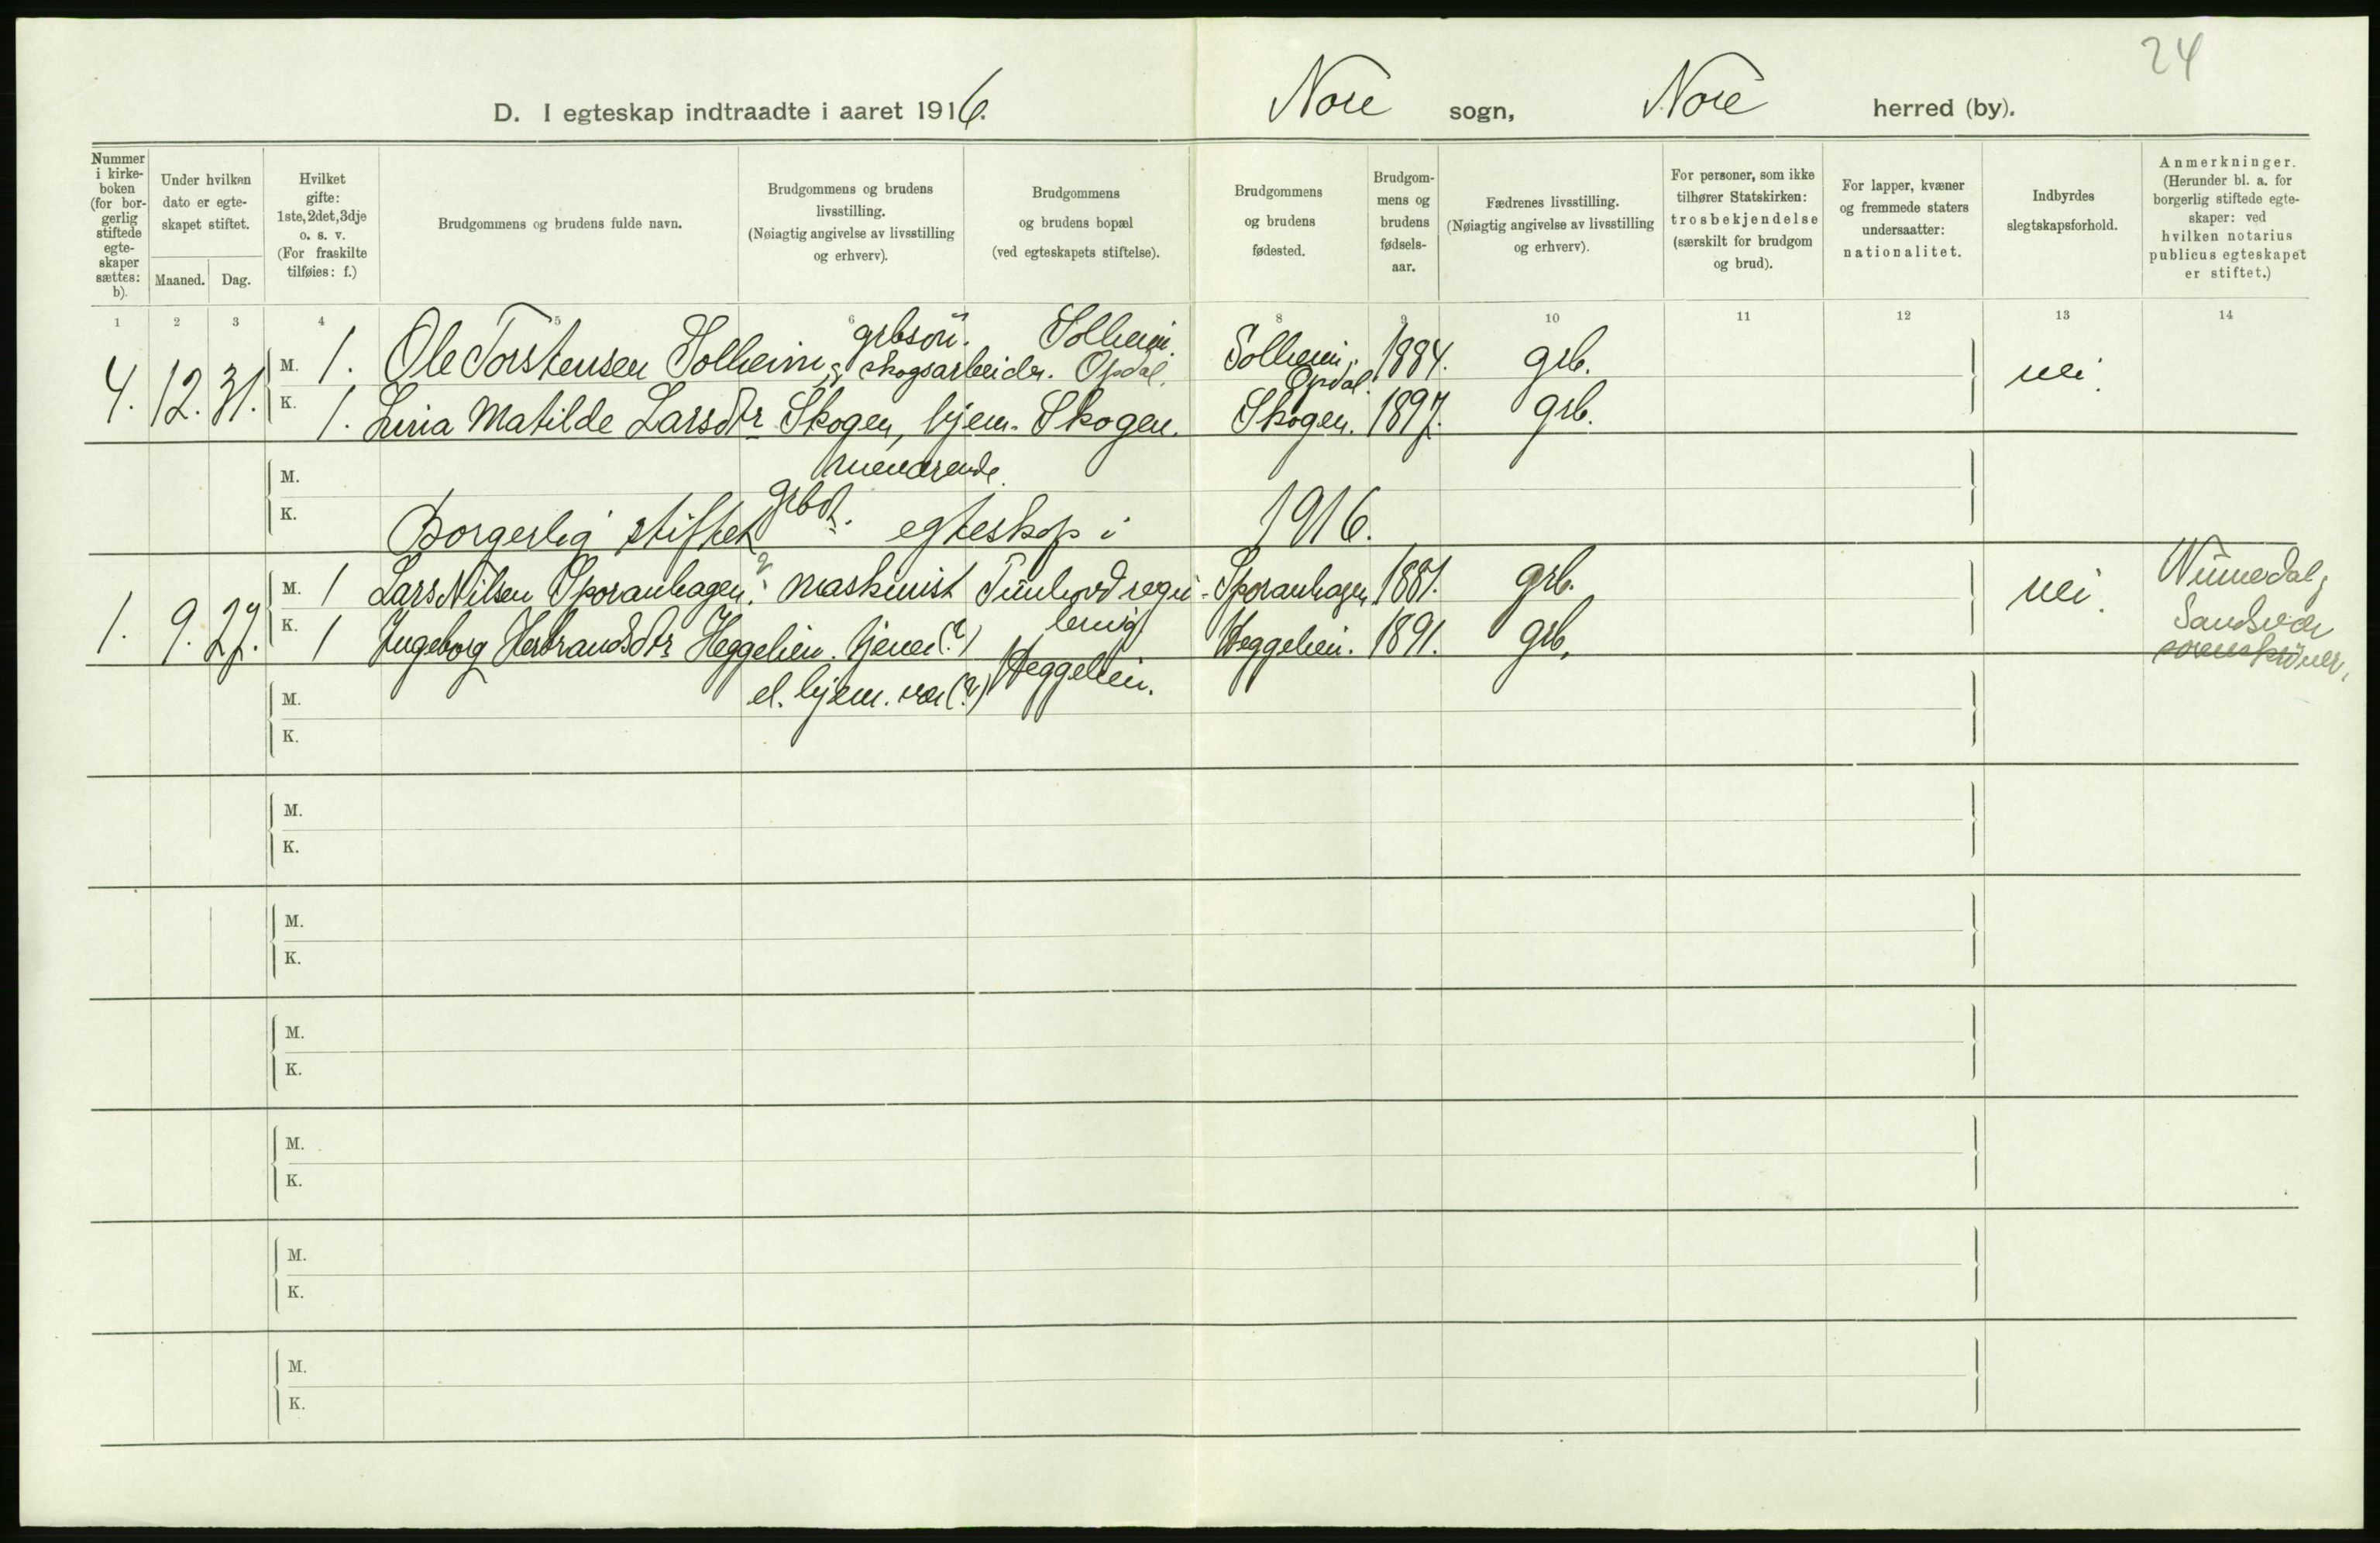 24
D. I egteskap indtraadte i aaret 1916. Nore sogn, Nore herred (by).
Nummer i kirkeboken (for borgerlig stiftede egteskaper sættes: b).
Under hvilken dato er egteskapet stiftet.
Maaned. Dag.
Hvilket gifte: 1ste, 2det, 3dje o. s. v. (For fraskilte tilføies: f.)
Brudgommens og brudens fulde navn.
Brudgommens og brudens livsstilling. (Nøiagtig angivelse av livsstilling og erhverv).
Brudgommens og brudens bopæl (ved egteskapets stiftelse).
Brudgommens og brudens fødested.
Brudgommens og brudens fødselsaar.
Fædrenes livsstilling. (Nøiagtig angivelse av livsstilling og erhverv).
For personer, som ikke tilhører Statskirken: trosbekjendelse (særskilt for brudgom og brud).
For lapper, kvæner og fremmede staters undersaatter: nationalitet.
Indbyrdes slegtskapsforhold.
Anmerkninger. (Herunder bl. a. for borgerlig stiftede egteskaper: ved hvilken notarius publicus egteskapet er stiftet.)
1 2 3 4 5 6 8 9 10 11 12 13 14
4. 12. 31.
M. 1. Ole Torstensen Solheim, grbsøn. & skogsarbeider. Solheim. Opdal. Solheim, Opdal. 1884. grb. nei.
K. 1. Matilde Larsdtr Skogen, hjem- Skogen. Skogen. 1897. grb.
værende.
grbdt.
M.
K. Borgerlig stiftet egteskap i 1916.
1. 9. 27.
M. 1 Lars Nilsen Sporanhagen. maskinist Tunhovd regu- Sporanhagen 1881. grb. nei. Numedal &
K. 1 Ingeborg Herbrandsdtr Heggelien. tjener (?) lering Heggelien. 1891. grb. Sandsvær
el. hjem. vær (?) Heggelien. sorenskriver.
M.
K.
M.
K.
M.
K.
M.
K.
M.
K.
M.
K.
M.
K.